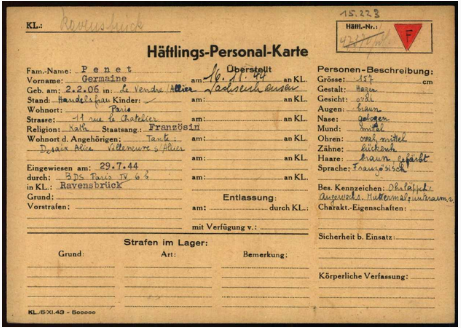 15.228
KL.: Ravensbrück
Häftl.-Nr.:
F
Häftlings-Personal-Karte
Fam.-Name: Penet
Vorname: Germaine
Geb. am: 2.2.06 in: Le Vendre/Allier
Stand: Handelsfrau Kinder:
Wohnort: Paris
Strasse: 11 rue le Chatelier
Religion: Kath Staatsang.: Französin
Wohnort d. Angehörigen: Tante:
Alice Villeneuve s/Allier
Eingewiesen am: 29.7.44
durch: BDS Paris IV
in KL.: Ravensbrück
Grund:
Vorstrafen:
Überstellt
am: 16.11.44 an KL.
Sachsenhausen
am: an KL.
am: an KL.
am: an KL.
am: an KL.
am: an KL.
Entlassung:
am: durch KL.:
mit Verfügung v.:
Personen-Beschreibung:
Grösse: 157 cm
Gestalt: hager
Gesicht: oval
Augen: braun
Nase: gebogen
Mund: mittel
Ohren: oval, mittel
Zähne: lückenh.
Haare: braun, gefärbt
Sprache: Französisch
Bes. Kennzeichen: Ohrläppch.
angewachs. Muttermal
Charakt.-Eigenschaften:
Sicherheit b. Einsatz:
Körperliche Verfassung:
Strafen im Lager:
Grund: Art: Bemerkung: